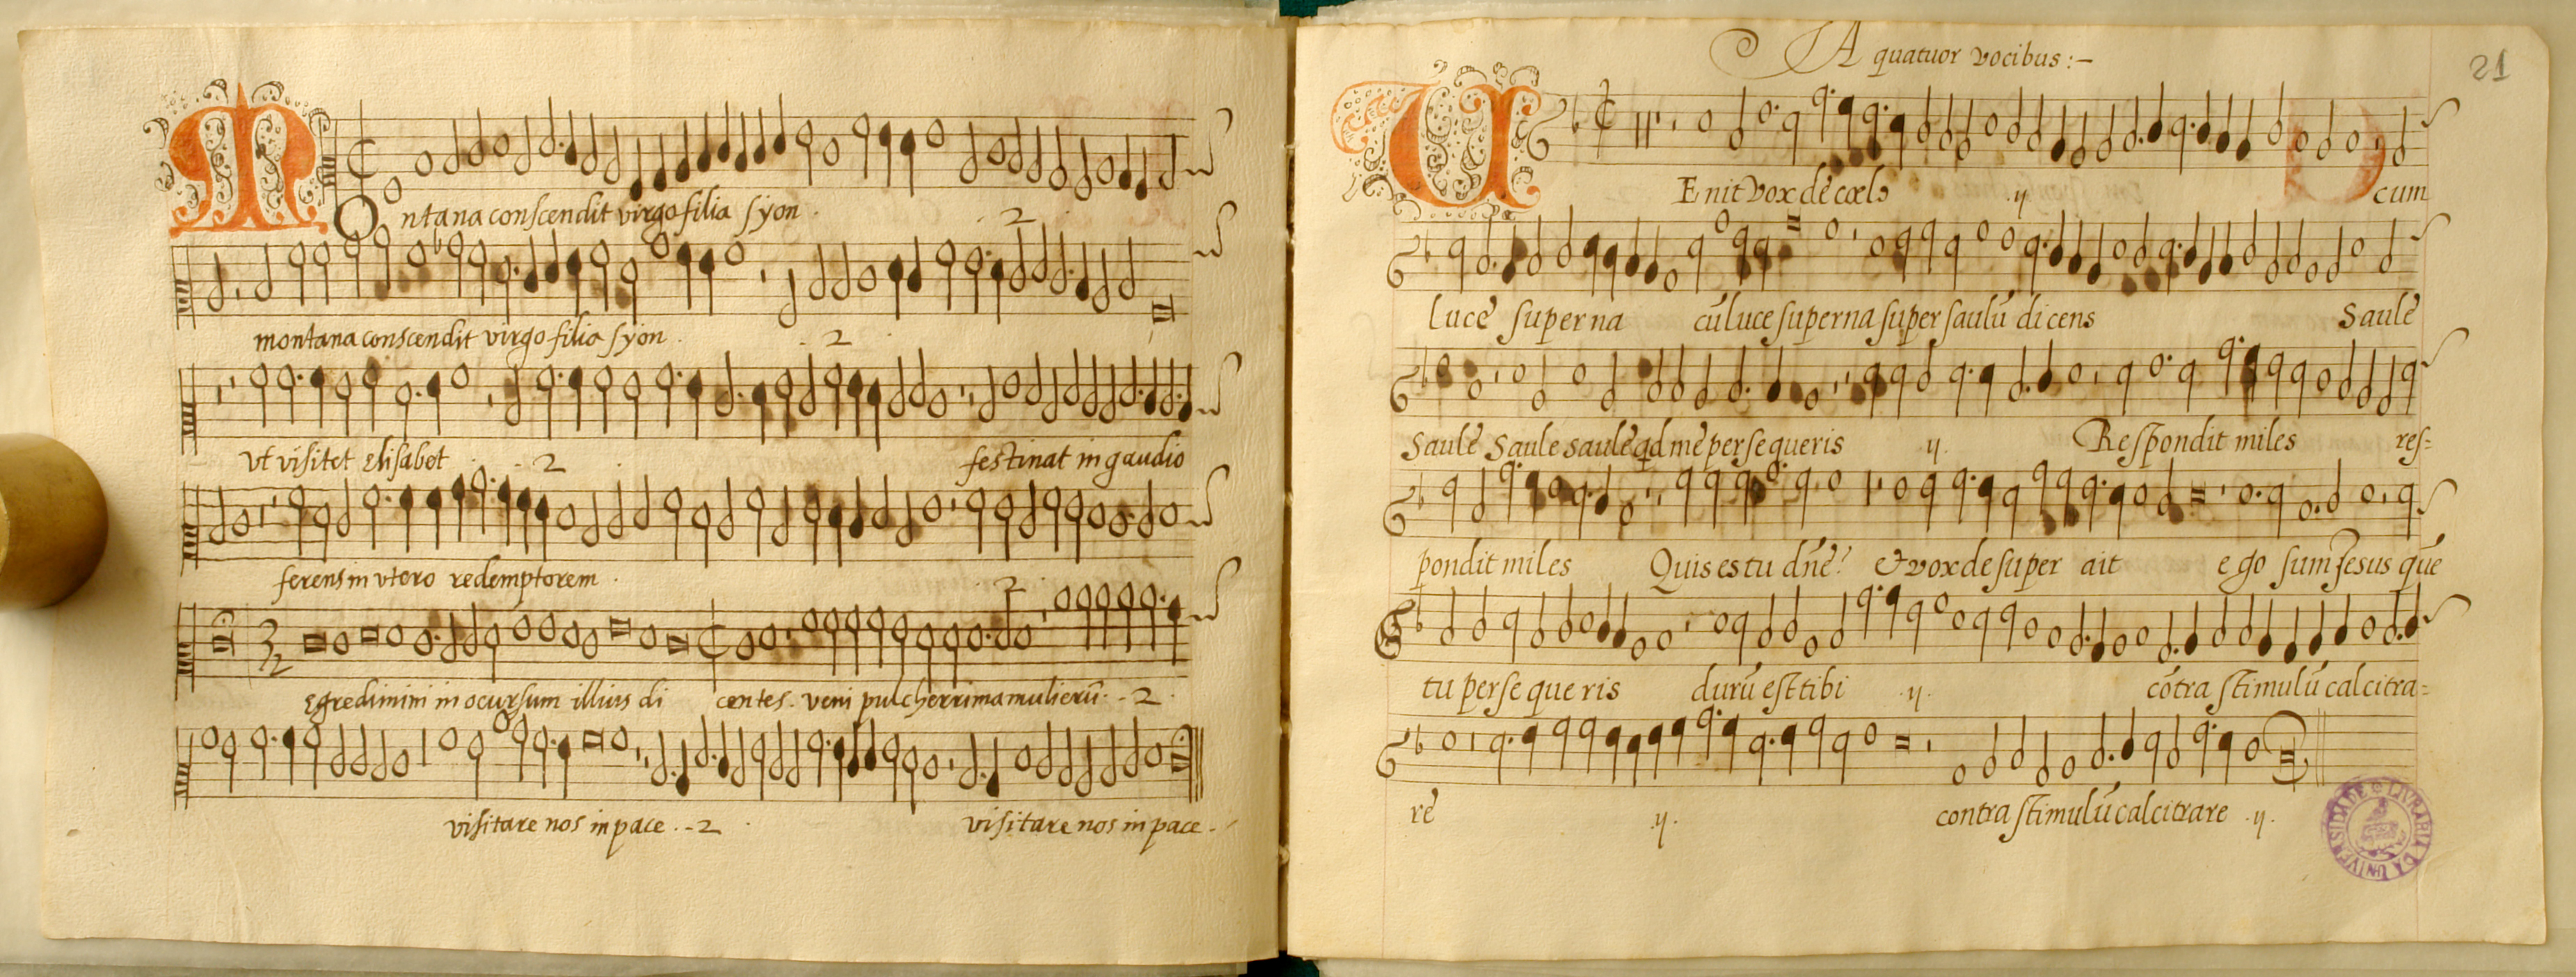 MOntana conscendit virgo filia syon . . 2 .
montana conscendit virgo filia syon . . 2 .
vt visitet Elisabet . . 2 . festinat in gaudio
ferens in vtero redemptorem . . 2
Egredimini in ocursum illius di centes . veni pulcherrima mulierū . - 2 .
visitare nos in pace . - 2 . visitare nos in pace . -
A quatuor vocibus : -
21
VEnit vox de cœlo ij cum
lucē superna cū luce superna super saulū dicens Saulē
Saulē Saule saulē qd mē persequeris ij . Respondit miles res=
pondit miles Quis es tu dn̄e? & vox de super ait ego sum Jesus quē
tu perseque ris durū est tibi . ij . cōtra stimulū calcitra=
rē . ij . contra stimulū calcitrare . ij .
LIVRARIA DA UNIVERSIDADE